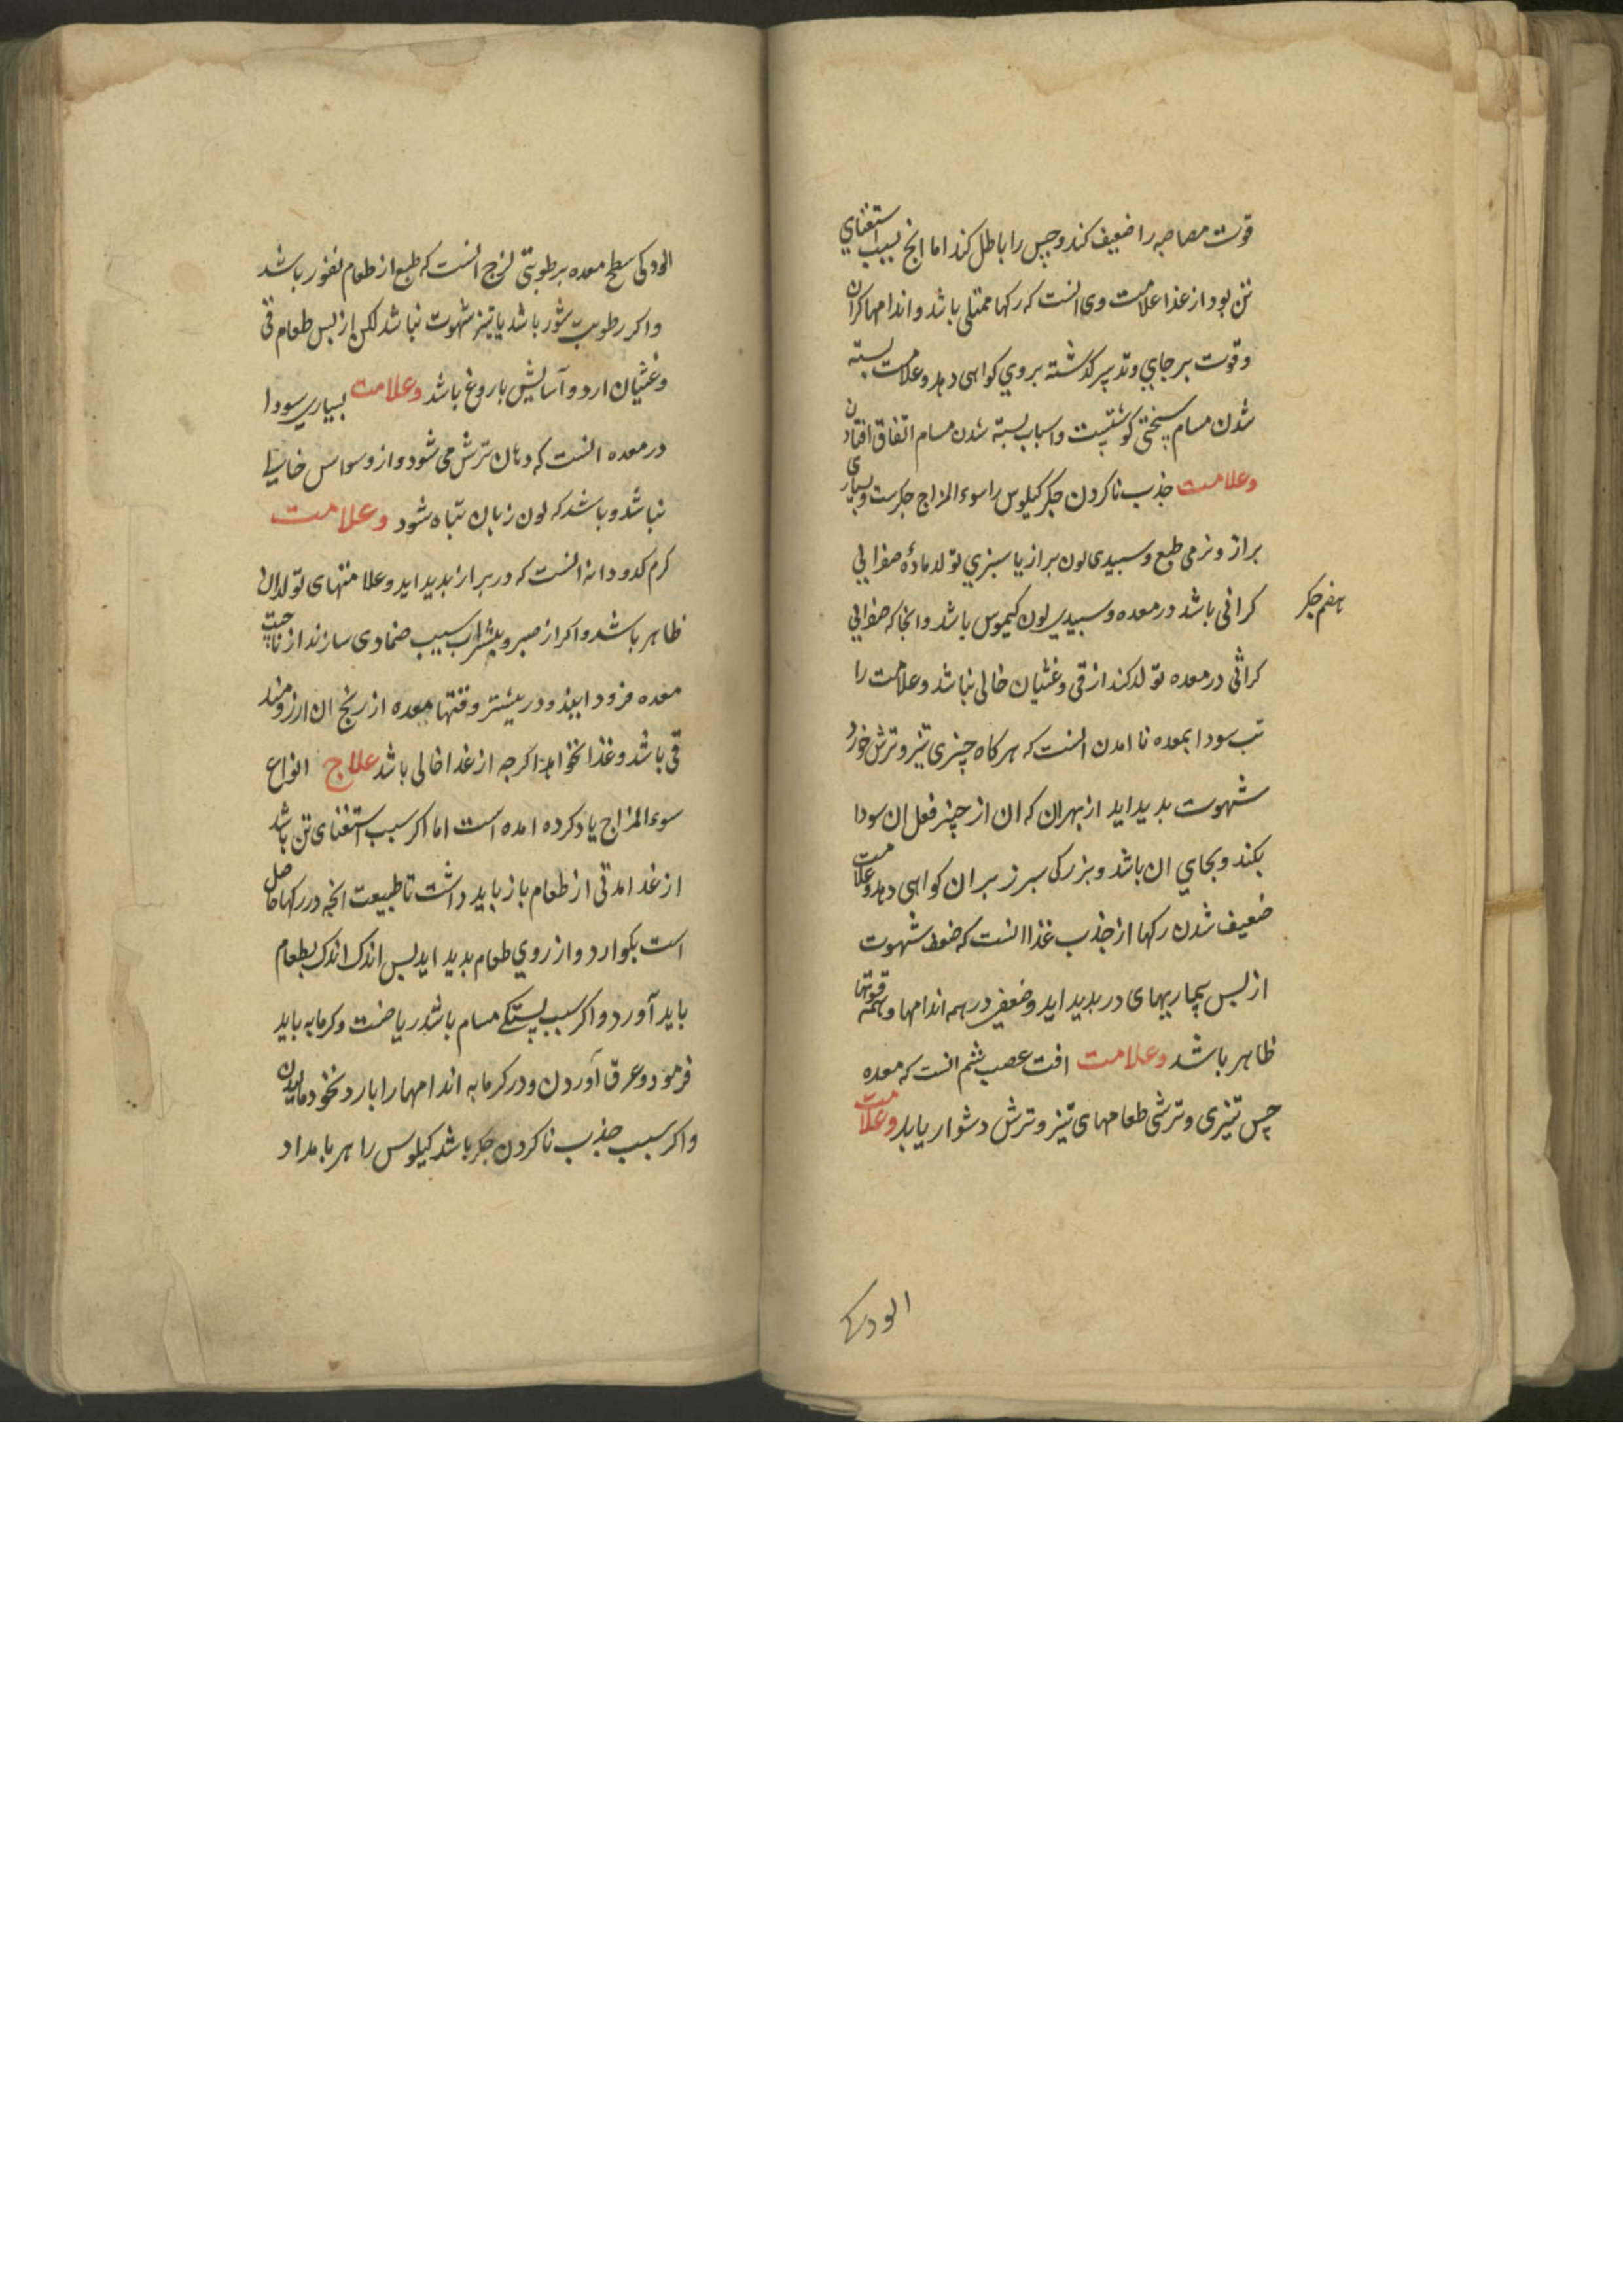 قوت مصاصه را ضعیف کند و حس را باطل کند اما انج بسبب استغنای
تن بود از غذا علامت وی انست که رکها ممتلی باشد و اندامها کران
و قوت بر جای و تدبیر کذشته بروی کواهی دهد و علامت بسته
شدن مسام سختی کوشتیست و اسباب بسته شدن مسام اتفاق افتادن
وعلامت جذب ناکردن جکر کیلوس را سوء المزاج جکرست و بسیاری
براز و نرمی طبع و سبیدی لون براز یا سبزی تولد مادهٔ صفرایی
کراثی باشد در معده و سبیدی لون کیموس باشد و انجا که صفرایی
هضم جکر
کراثی در معده تولد کند از قی و غثیان خالی نباشد و علامت را
تب سودا بمعده نا امدن انست که هر کاه چیزی تیز و ترش خورد
شهوت بدید اید از بهران که ان از چیز فعل ان سودا
بکند و بجای ان باشد و بزرکی سبرز بران کواهی دهد و علامت
ضعیف شدن رکها از جذب غذا انست که ضعف شهوت
از بس بیماریهای در بدید اید و ضعیفی در همه اندامها و همه قوتها
ظاهر باشد وعلامت افت عصب ششم انست که معده
حس تیزی و ترشی طعامهای تیز و ترش دشوار یابد وعلامت
الودکی
الودکی سطح معده برطوبتی لزج انست که طبع از طعام نفور باشد
و اکر رطوبت شور باشد یا تیز شهوت نباشد لکن از بس طعام قی
و غثیان ارد و آسایش باروغ باشد وعلامت بسیاری سودا
در معده انست که دهان ترش می شود و از وسواس خالی
نباشد و باشد که لون زبان تباه شود وعلامت
کرم کدودانه انست که در براز بدید اید و علامتهای تولد ان
ظاهر باشد و اکر از صبر و شراب سیب ضمادی سازند از ناحیت
معده فرود ایند و در بیشتر وقتها معده از رنج ان ارزومند
قی باشد و غذا نخواهد اکرجه از غذا خالی باشد علاج انواع
سوء المزاج یاد کرده امده است اما اکر سبب استغنای تن باشد
از غذا مدتی از طعام باز باید داشت تا طبیعت انجه در رکها حاصل
است بکوارد و ارزوی طعام بدید اید بس اندک اندک بطعام
باید آورد و اکر سبب بستکی مسام باشد ریاضت و کرمابه باید
فرمود و عرق آوردن و در کرمابه اندامها را بارد نخود مالیدن
و اکر سبب جذب ناکردن جکر باشد کیلوس را هر بامداد